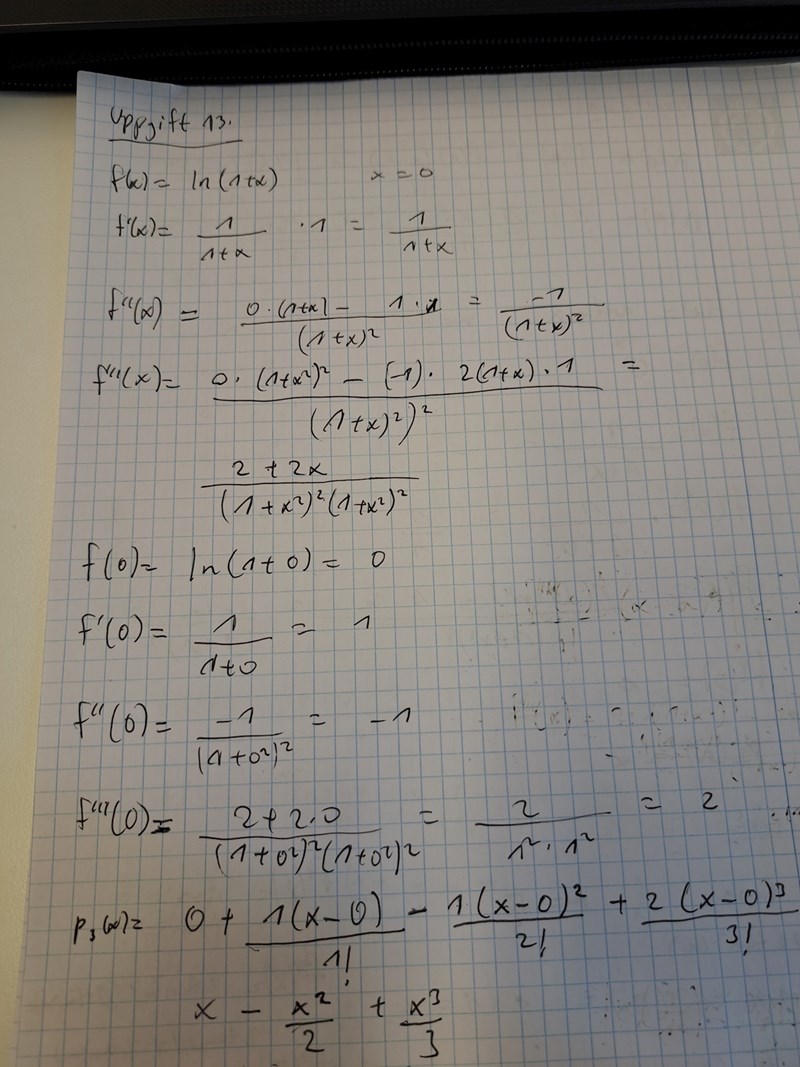 Uppgift 13.
f(x) = ln(1+x) x = 0
f'(x) = 1/(1+x) · 1 = 1/(1+x)
f''(x) = (0·(1+x) - 1·1)/(1+x)² = -1/(1+x)²
f'''(x) = (0·(1+x²)² - (-1)·2(1+x)·1)/((1+x)²)² =
(2+2x)/((1+x²)²(1+x²)²)
f(0) = ln(1+0) = 0
f'(0) = 1/(1+0) = 1
f''(0) = -1/(1+0²)² = -1
f'''(0) = (2+2·0)/((1+0²)²(1+0²)²) = 2/(1²·1²) = 2
p₃(x) = 0 + 1(x-0)/1! - 1(x-0)²/2! + 2(x-0)³/3!
x - x²/2 + x³/3